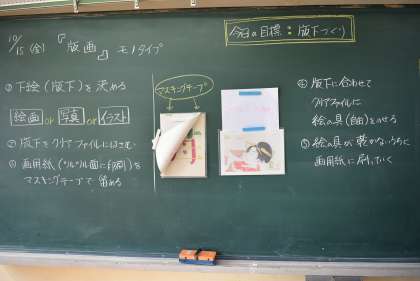 10/15(金) 『版画』 モノタイプ
今日の目標:版下づくり
① 下絵(版下)を決める
絵画 or 写真 or イラスト
② 版下をクリアファイルにはさむ
③ 画用紙(ツルツル面に印刷)を
マスキングテープで留める
マスキングテープ
④ 版下に合わせて
クリアファイルに
絵の具(自由)をのせる
⑤ 絵の具が乾かないうちに
画用紙に刷っていく